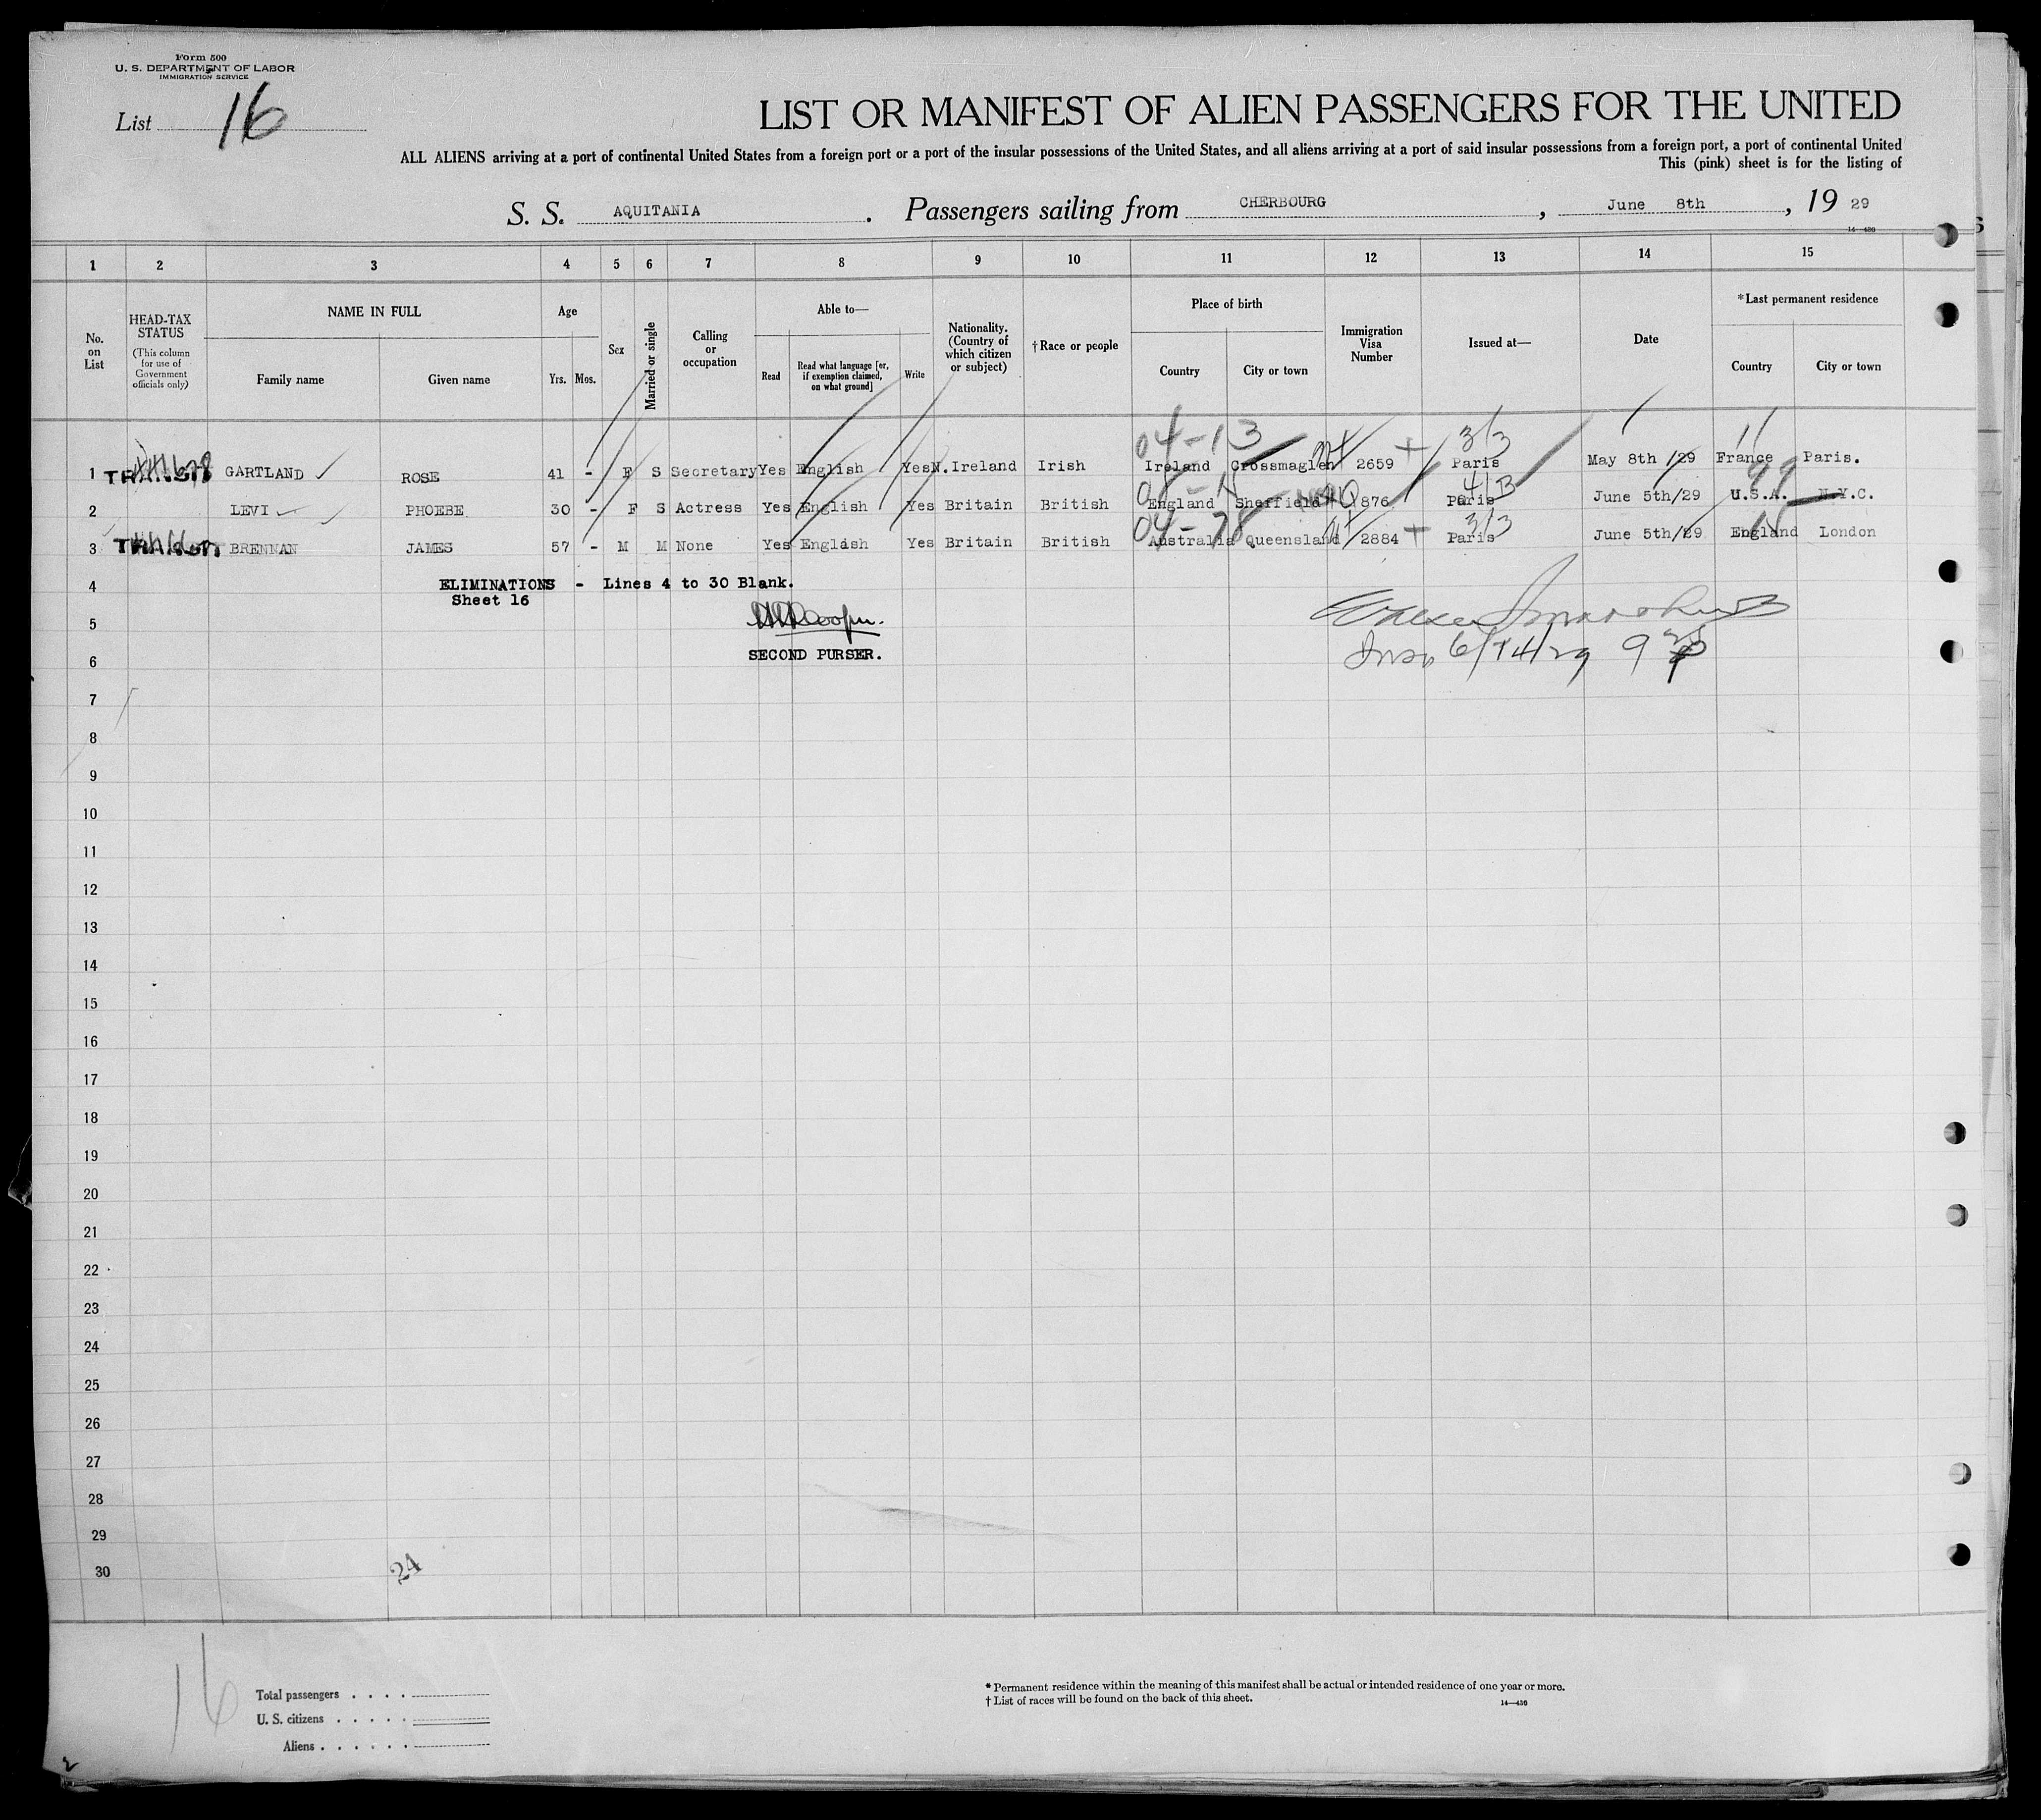 Form 500
U. S. DEPARTMENT OF LABOR
IMMIGRATION SERVICE
List 16
LIST OR MANIFEST OF ALIEN PASSENGERS FOR THE UNITED
ALL ALIENS arriving at a port of continental United States from a foreign port or a port of the insular possessions of the United States, and all aliens arriving at a port of said insular possessions from a foreign port, a port of continental United
This (pink) sheet is for the listing of
S. S. AQUITANIA. Passengers sailing from CHERBOURG, June 8th, 19 29
14—430
1 2 3 4 5 6 7 8 9 10 11 12 13 14 15
No. on List
HEAD-TAX STATUS (This column for use of Government officials only)
NAME IN FULL
Family name Given name
Age
Yrs. Mos.
Sex
Married or single
Calling or occupation
Able to—
Read Read what language [or, if exemption claimed, on what ground] Write
Nationality. (Country of which citizen or subject)
†Race or people
Place of birth
Country City or town
Immigration Visa Number
Issued at—
Date
*Last permanent residence
Country City or town
04-13 3/3 11
1 GARTLAND ROSE 41 - F S Secretary Yes English Yes N.Ireland Irish Ireland Crossmaglen 2659 Paris May 8th /29 France Paris.
99
2 LEVI PHOEBE 30 - F S Actress Yes English Yes Britain British England Sheffield 876 Paris June 5th/29 U.S.A. N.Y.C.
04-78 3/3
3 BRENNAN JAMES 57 - M M None Yes English Yes Britain British Australia Queensland 2884 Paris June 5th/29 England London
4 ELIMINATIONS - Lines 4 to 30 Blank.
Sheet 16
5
6 SECOND PURSER.
6/14/29
7
8
9
10
11
12
13
14
15
16
17
18
19
20
21
22
23
24
25
26
27
28
29
30
24
16
Total passengers
U. S. citizens
Aliens
* Permanent residence within the meaning of this manifest shall be actual or intended residence of one year or more.
† List of races will be found on the back of this sheet.
14—430
2